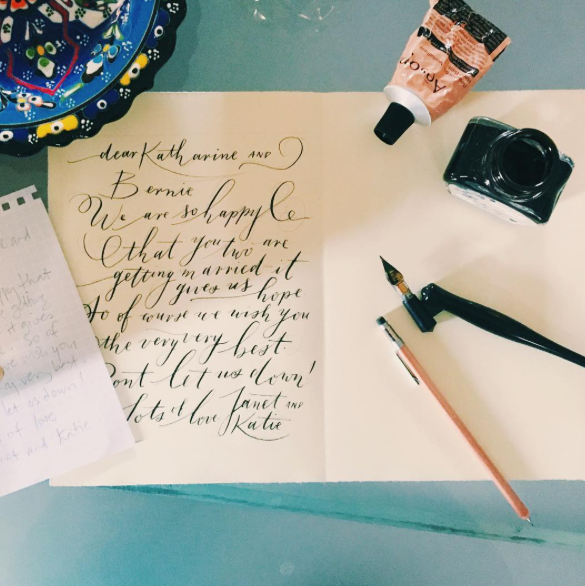 dear Katharine AND
Bernie
We are so happy
that you two are
getting married it
gives us hope
So of course we wish you
the very very best.
Dont let us down!
lots of love Janet AND
Katie
Aesop
that
it gives
So of
wish you
very best
let us down!
of love
and Katie